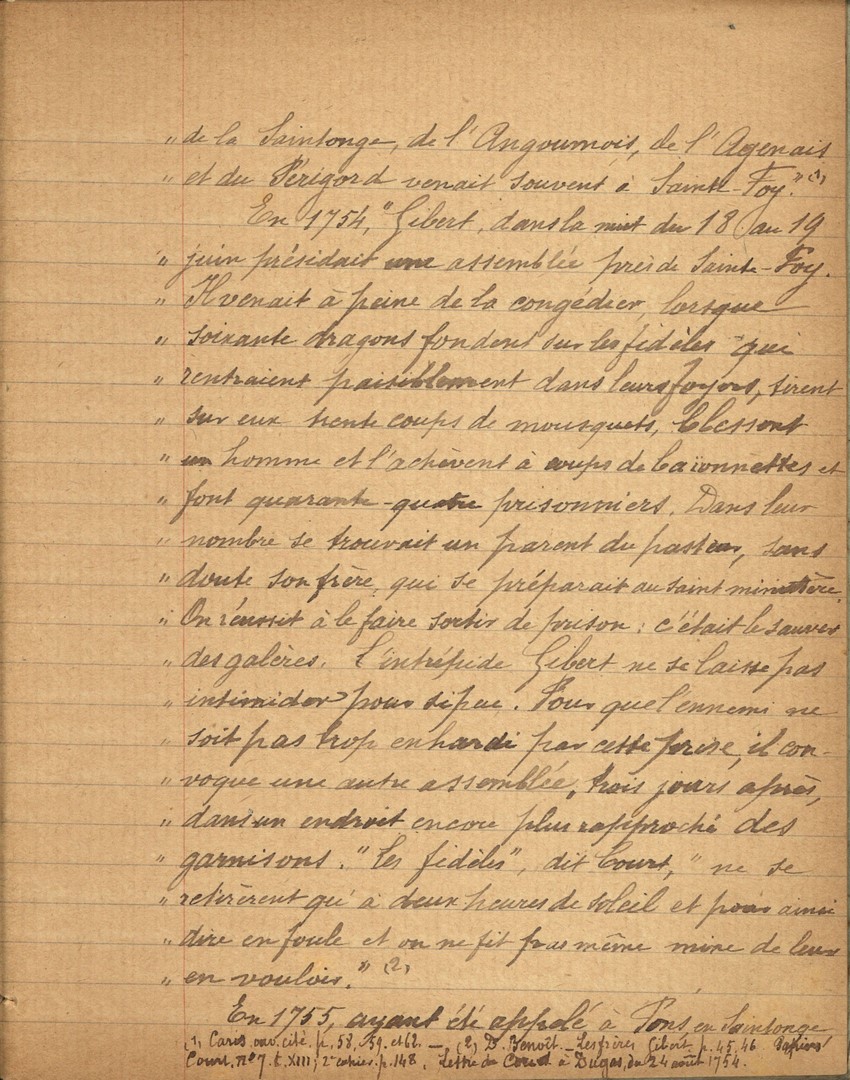 " de la Saintonge, de l'Angoumois, de l'Agenais
" et du Périgord venait souvent à Sainte-Foy." (1)
En 1754, "Gibert, dans la nuit du 18 au 19
" juin présidait une assemblée près de Sainte-Foy.
" Il venait à peine de la congédier, lorsque
" soixante dragons fondent sur les fidèles qui
" rentraient paisiblement dans leurs foyers, tirent
" sur eux trente coups de mousquets, blessent
" un homme et l'achèvent à coups de baïonnettes et
" font quarante-quatre prisonniers. Dans leur
" nombre se trouvait un parent du pasteur, sans
" doute son frère, qui se préparait au saint ministère.
" On réussit à le faire sortir de prison : c'était le sauver
" des galères. L'intrépide Gibert ne se laisse pas
" intimider pour si peu. Pour que l'ennemi ne
" soit pas trop enhardi par cette prise, il con-
" voque une autre assemblée, trois jours après,
" dans un endroit encore plus rapproché des
" garnisons. "Les fidèles", dit Court, "ne se
" retirèrent qu'à deux heures de soleil et pour ainsi
" dire en foule et on ne fit pas même mine de leur
" en vouloir." (2)
En 1755, ayant été appelé à Pons, en Saintonge
(1) Caris, ouv. cité. p. 58, 59. et 62. — (2) D. Benoît. _ Les frères Gibert. p. 45, 46 Papiers
Court, n° 7. t. XIII; 2e cahier. p. 148. Lettre de Court à Dugas, du 24 août 1754.